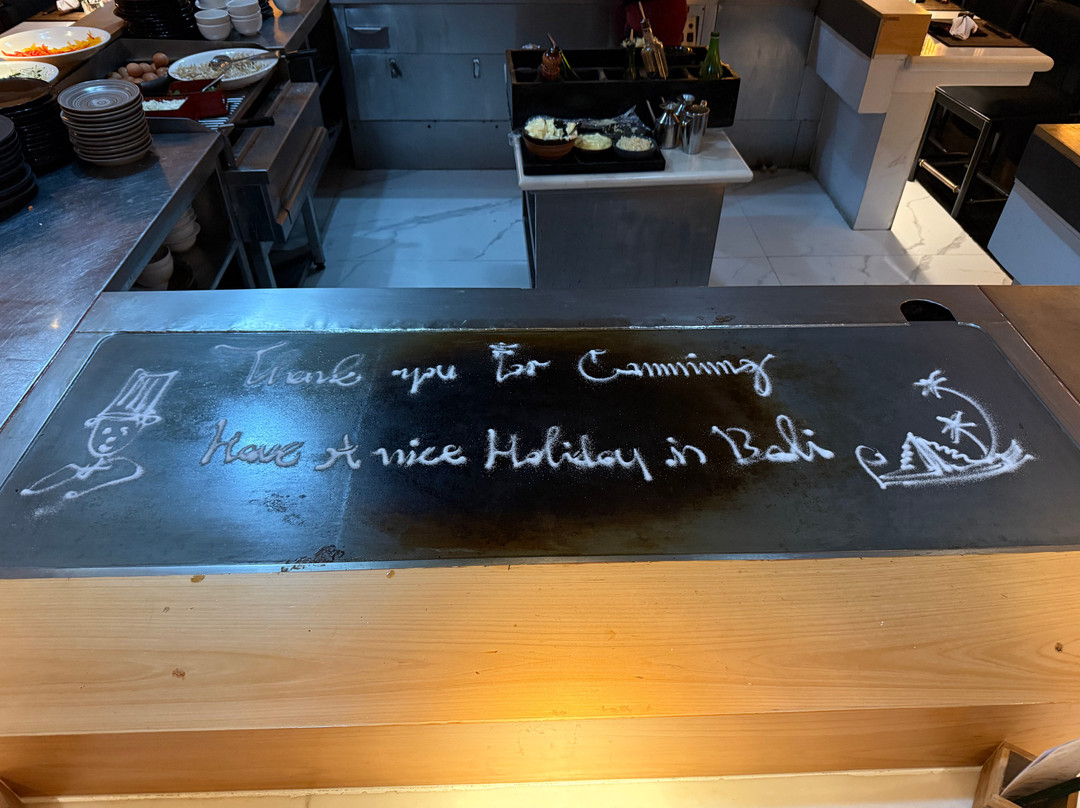 Thank you For Camming
Have A nice Holiday in Bali